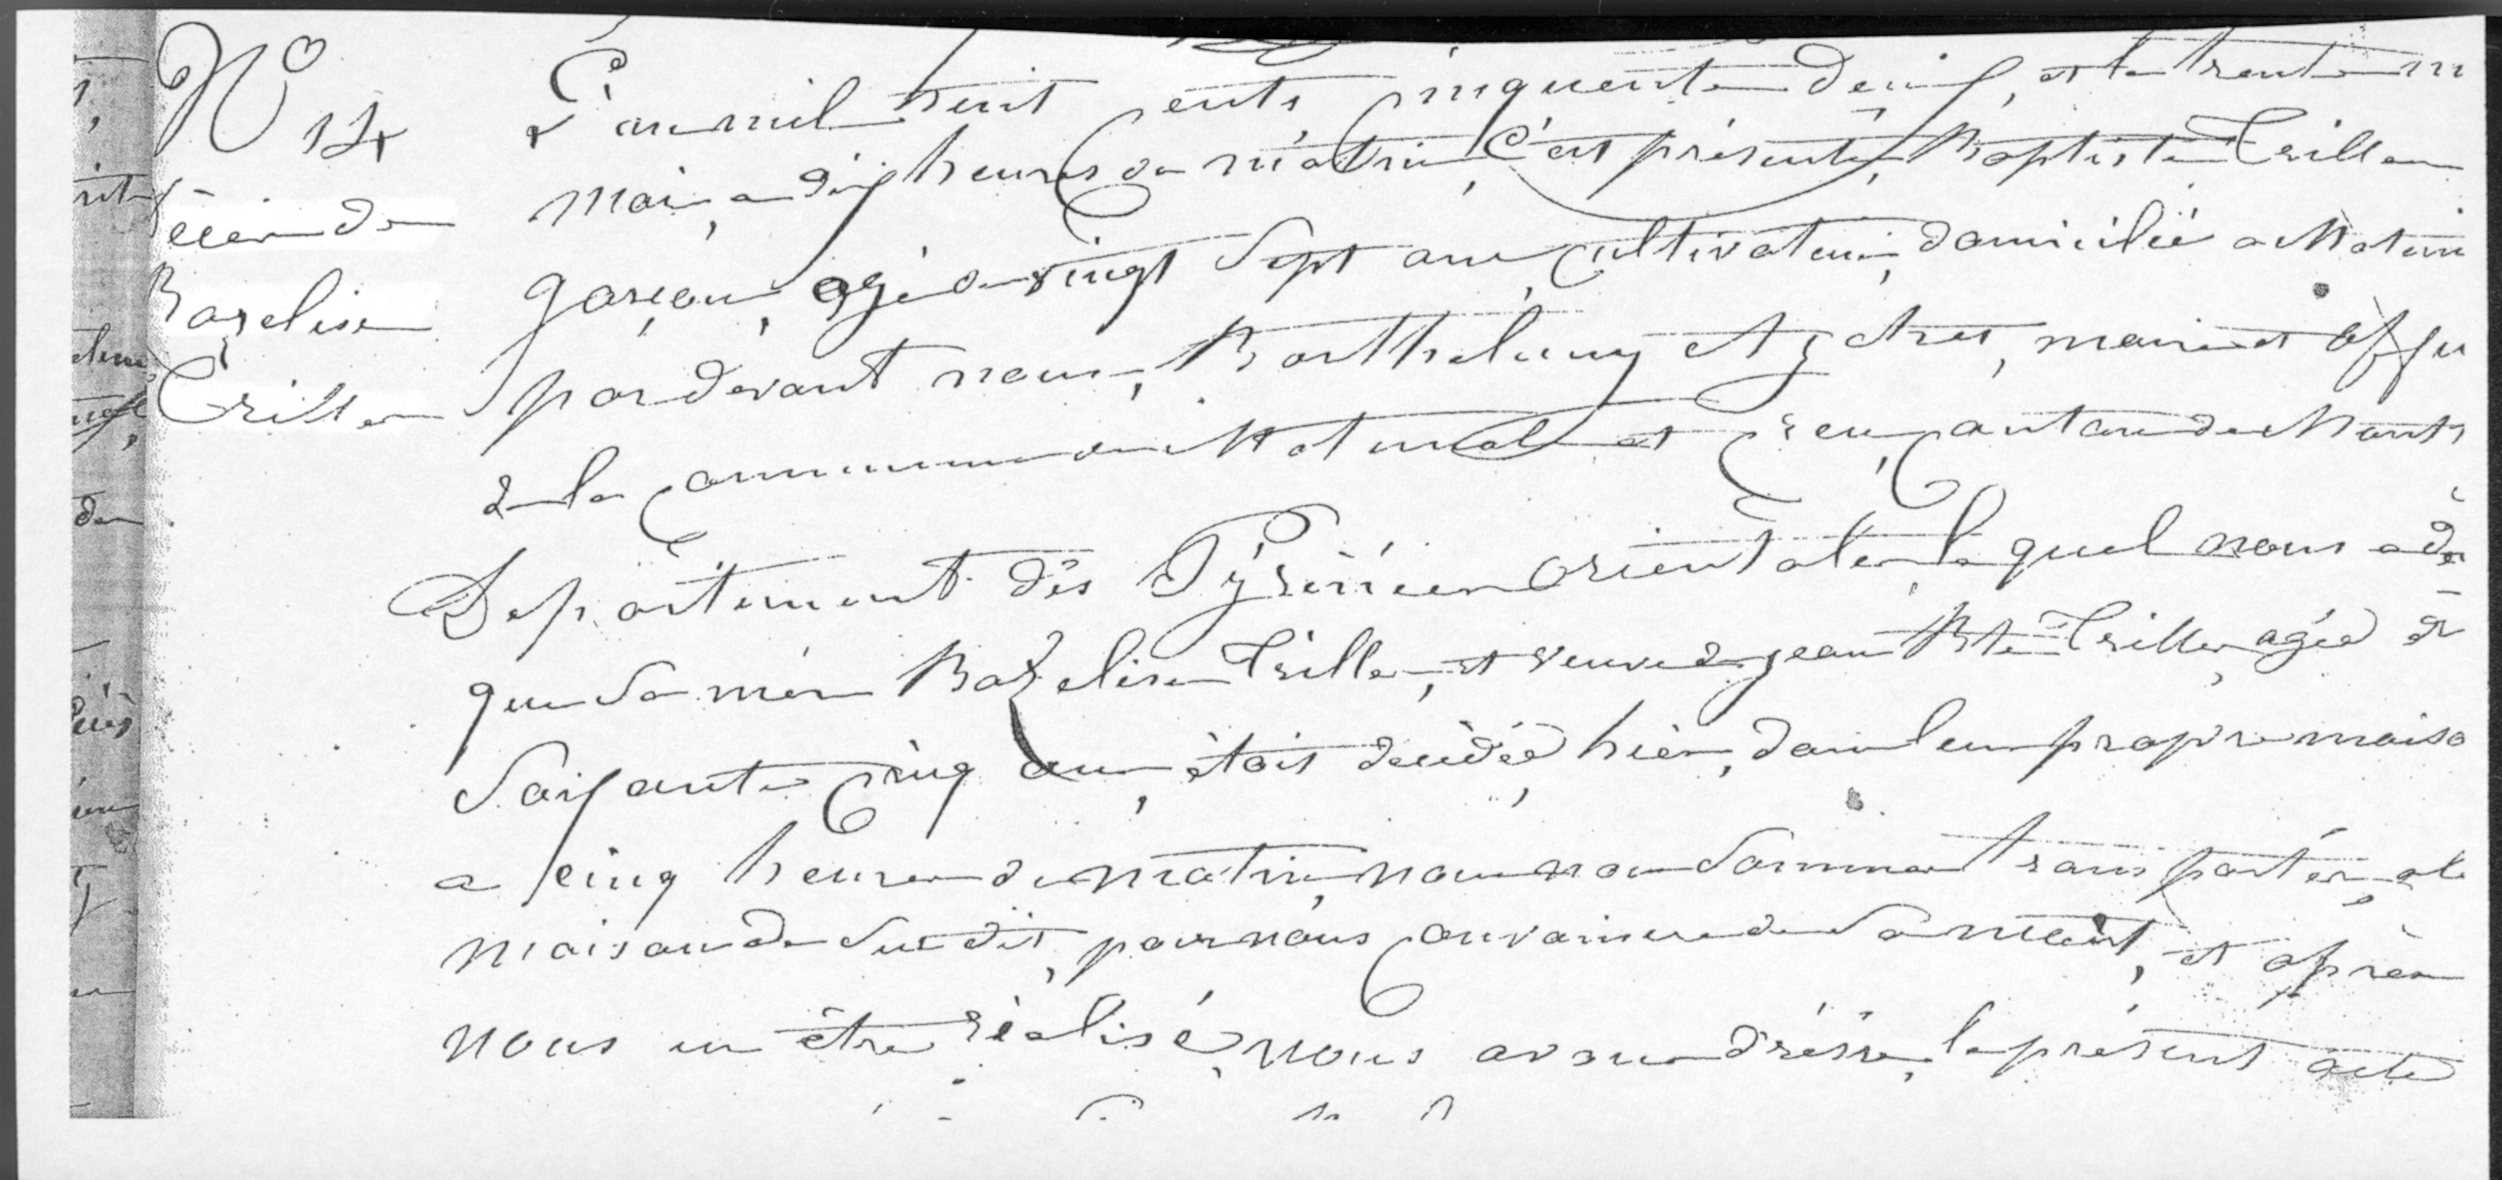 N° 14
décés de
Bazelise
Triller
L'an mil huit cents cinquente deux, et le trente un
mai, a dix heures du matin, s'est présenté, Baptiste Triller
garçon, agé de vingt sept ans, cultivateur, domicilié a Matem
par devant nous, Barthelemy Ay, maire et offi
de la commune de Matemale et creu, canton de Mont
Departement dés Pyrénées orientales, le quel nous a dé
que sa mère Bazelise Triller, et veuve de jean Bte Triller, agée de
Soixante cinq ans, étais decedée hièr, dans leur propre maiso
a cinq heures du matin, nous nous sommes transportés, a la
maison du susdit, pour nous convaincre de sa mort, et après
nous en être réalisé, nous avons dréssé, le présent acte